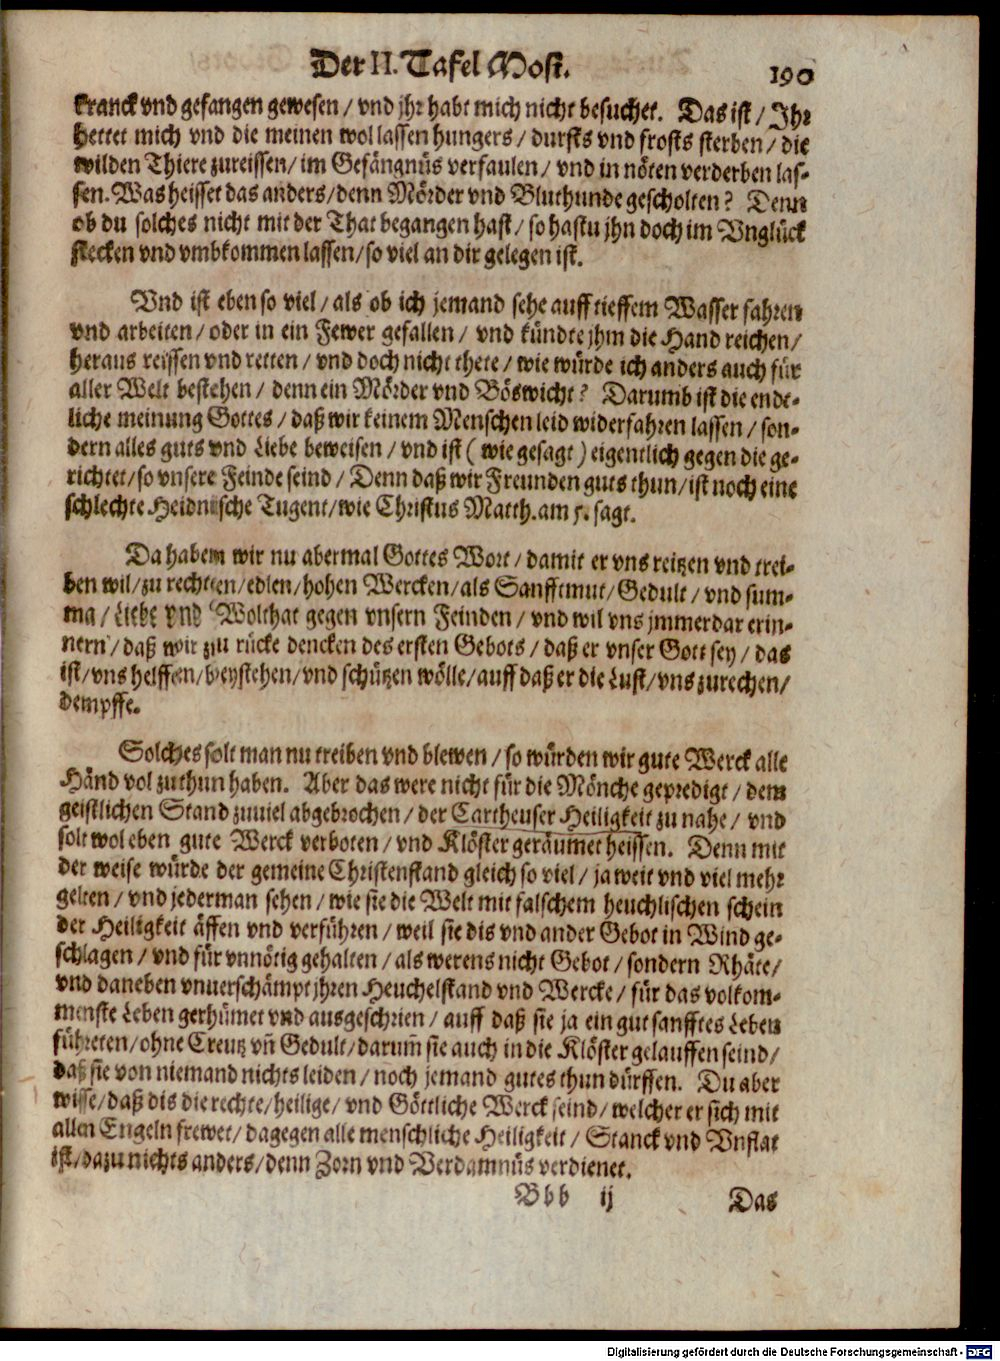 Der II. Tafel Mosi.
190
kranck vnd gefangen gewesen / vnd jhr habt mich nicht besuchet. Das ist / Ihr
hettet mich vnd die meinen wol lassen hungers / dursts vnd frosts sterben / die
wilden Thiere zureissen / im Gefängnüs verfaulen / vnd in nöten verderben las-
sen. Was heisset das anders / denn Mörder vnd Bluthunde gescholten? Denn
ob du solches nicht mit der That begangen hast / so hastu jhn doch im Vnglück
stecken vnd vmbkommen lassen / so viel an dir gelegen ist.
Vnd ist eben so viel / als ob ich jemand sehe auff tieffem Wasser fahren
vnd arbeiten / oder in ein Fewer gefallen / vnd kündte jhm die Hand reichen /
heraus reissen vnd retten / vnd doch nicht thete / wie würde ich anders auch für
aller Welt bestehen / denn ein Mörder vnd Böswicht? Darumb ist die ende-
liche meinung Gottes / daß wir keinem Menschen leid widerfahren lassen / son-
dern alles guts vnd Liebe beweisen / vnd ist ( wie gesagt ) eigentlich gegen die ge-
richtet / so vnsere Feinde seind / Denn daß wir Freunden guts thun / ist noch eine
schlechte Heidnische Tugent / wie Christus Matth. am 5. sagt.
Da haben wir nu abermal Gottes Wort / damit er vns reitzen vnd trei-
ben wil / zu rechten / edlen / hohen Wercken / als Sanfftmut / Gedult / vnd sum-
ma / Liebe vnd Wolthat gegen vnsern Feinden / vnd wil vns jmmerdar erin-
nern / daß wir zu rücke dencken des ersten Gebots / daß er vnser Gott sey / das
ist / vns helffen / beystehen / vnd schützen wölle / auff daß er die Lust / vns zurechen /
dempffe.
Solches solt man nu treiben vnd blewen / so würden wir gute Werck alle
Händ vol zuthun haben. Aber das were nicht für die Mönche gepredigt / dem
geistlichen Stand zuuiel abgebrochen / der Cartheuser Heiligkeit zu nahe / vnd
solt wol eben gute Werck verboten / vnd Klöster geräumet heissen. Denn mit
der weise würde der gemeine Christenstand gleich so viel / ja weit vnd viel mehr
gelten / vnd jederman sehen / wie sie die Welt mit falschem heuchlischen schein
der Heiligkeit äffen vnd verführen / weil sie dis vnd ander Gebot in Wind ge-
schlagen / vnd für vnnötig gehalten / als werens nicht Gebot / sondern Rhäte /
vnd daneben vnuerschämpt jhren Heuchelstand vnd Wercke / für das volkom-
menste Leben gerhümet vnd ausgeschrien / auff daß sie ja ein gut sanfftes Leben
führeten / ohne Creutz vñ Gedult / darum̃ sie auch in die Klöster gelauffen seind /
daß sie von niemand nichts leiden / noch jemand gutes thun dürffen. Du aber
wisse / daß dis die rechte / heilige / vnd Göttliche Werck seind / welcher er sich mit
allen Engeln frewet / dagegen alle menschliche Heiligkeit / Stanck vnd Vnflat
ist / dazu nichts anders / denn Zorn vnd Verdamnüs verdienet.
Bbb ij
Das
Digitalisierung gefördert durch die Deutsche Forschungsgemeinschaft - DFG